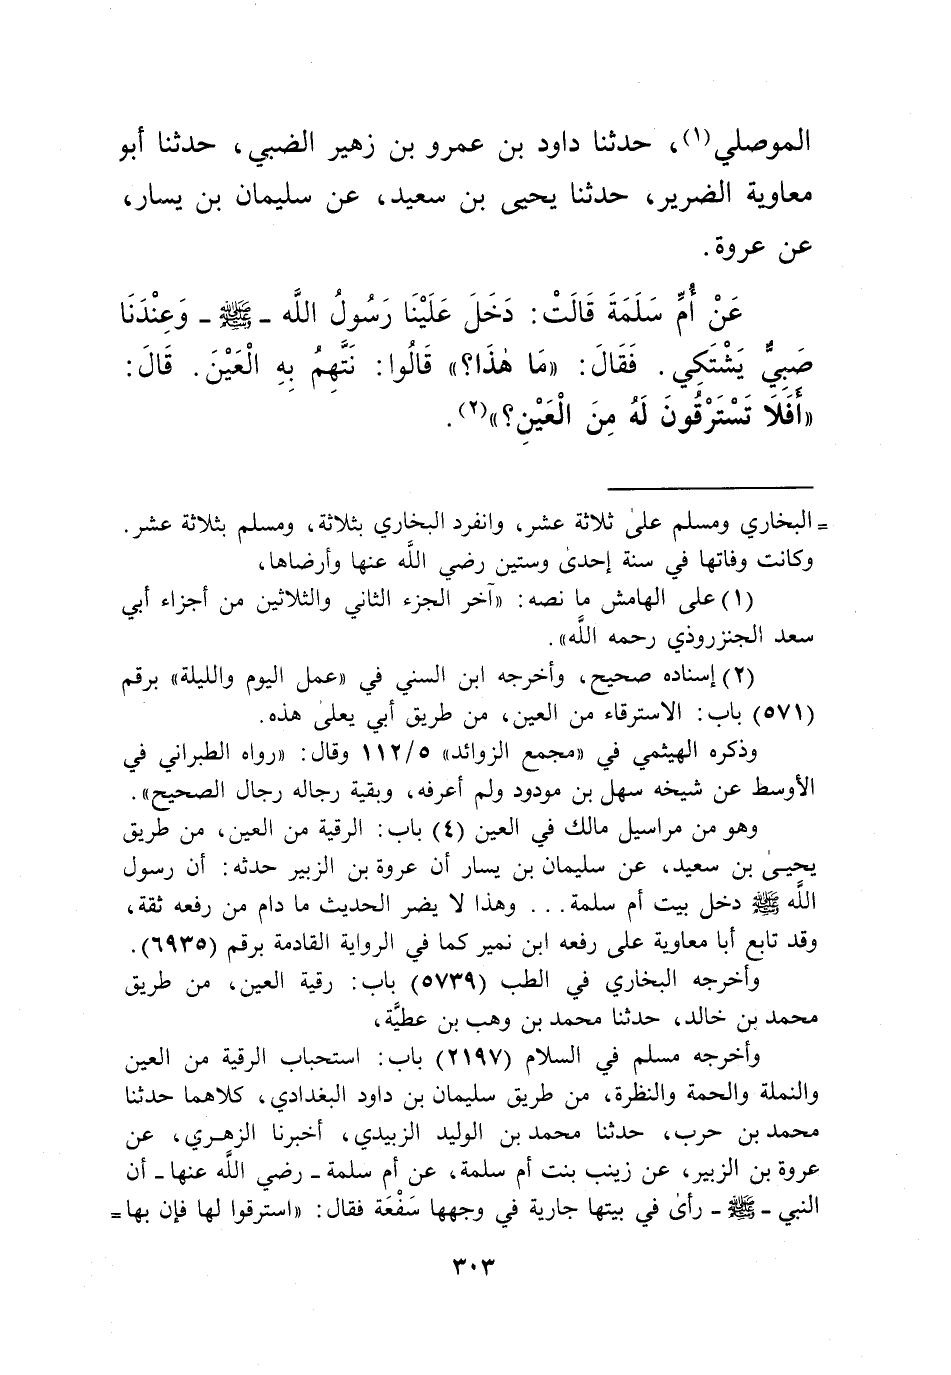 الموصلي(١)، حدثنا داود بن عمرو بن زهير الضبي، حدثنا أبو
معاوية الضرير، حدثنا يحيى بن سعيد، عن سليمان بن يسار،
عن عروة.
عَنْ أُمِّ سَلَمَةَ قَالَتْ: دَخَلَ عَلَيْنَا رَسُولُ اللَّه ـ ﷺ ـ وَعِنْدَنَا
صَبِيٌّ يَشْتَكِي. فَقَالَ: «مَا هٰذَا؟» قَالُوا: نَتَّهِمُ بِهِ الْعَيْنَ. قَالَ:
«أَفَلَا تَسْتَرْقُونَ لَهُ مِنَ الْعَيْنِ؟»(٢).
= البخاري ومسلم علىٰ ثلاثة عشر، وانفرد البخاري بثلاثة، ومسلم بثلاثة عشر.
وكانت وفاتها في سنة إحدىٰ وستين رضي اللَّه عنها وأرضاها،
(١) على الهامش ما نصه: «آخر الجزء الثاني والثلاثين من أجزاء أبي
سعد الجنزروذي رحمه اللَّه».
(٢) إسناده صحيح، وأخرجه ابن السني في «عمل اليوم والليلة» برقم
(٥٧١) باب: الاسترقاء من العين، من طريق أبي يعلىٰ هذه.
وذكره الهيثمي في «مجمع الزوائد» ١١٢/٥ وقال: «رواه الطبراني في
الأوسط عن شيخه سهل بن مودود ولم أعرفه، وبقية رجاله رجال الصحيح».
وهو من مراسيل مالك في العين (٤) باب: الرقية من العين، من طريق
يحيىٰ بن سعيد، عن سليمان بن يسار أن عروة بن الزبير حدثه: أن رسول
اللَّه ﷺ دخل بيت أم سلمة... وهذا لا يضر الحديث ما دام من رفعه ثقة،
وقد تابع أبا معاوية على رفعه ابن نمير كما في الرواية القادمة برقم (٦٩٣٥).
وأخرجه البخاري في الطب (٥٧٣٩) باب: رقية العين، من طريق
محمد بن خالد، حدثنا محمد بن وهب بن عطيَّة،
وأخرجه مسلم في السلام (٢١٩٧) باب: استحباب الرقية من العين
والنملة والحمة والنظرة، من طريق سليمان بن داود البغدادي، كلاهما حدثنا
محمد بن حرب، حدثنا محمد بن الوليد الزبيدي، أخبرنا الزهري، عن
عروة بن الزبير، عن زينب بنت أم سلمة، عن أم سلمة ـ رضي اللَّه عنها ـ أن
النبي ـ ﷺ ـ رأىٰ في بيتها جارية في وجهها سَفْعَة فقال: «استرقوا لها فإن بها =
٣٠٣